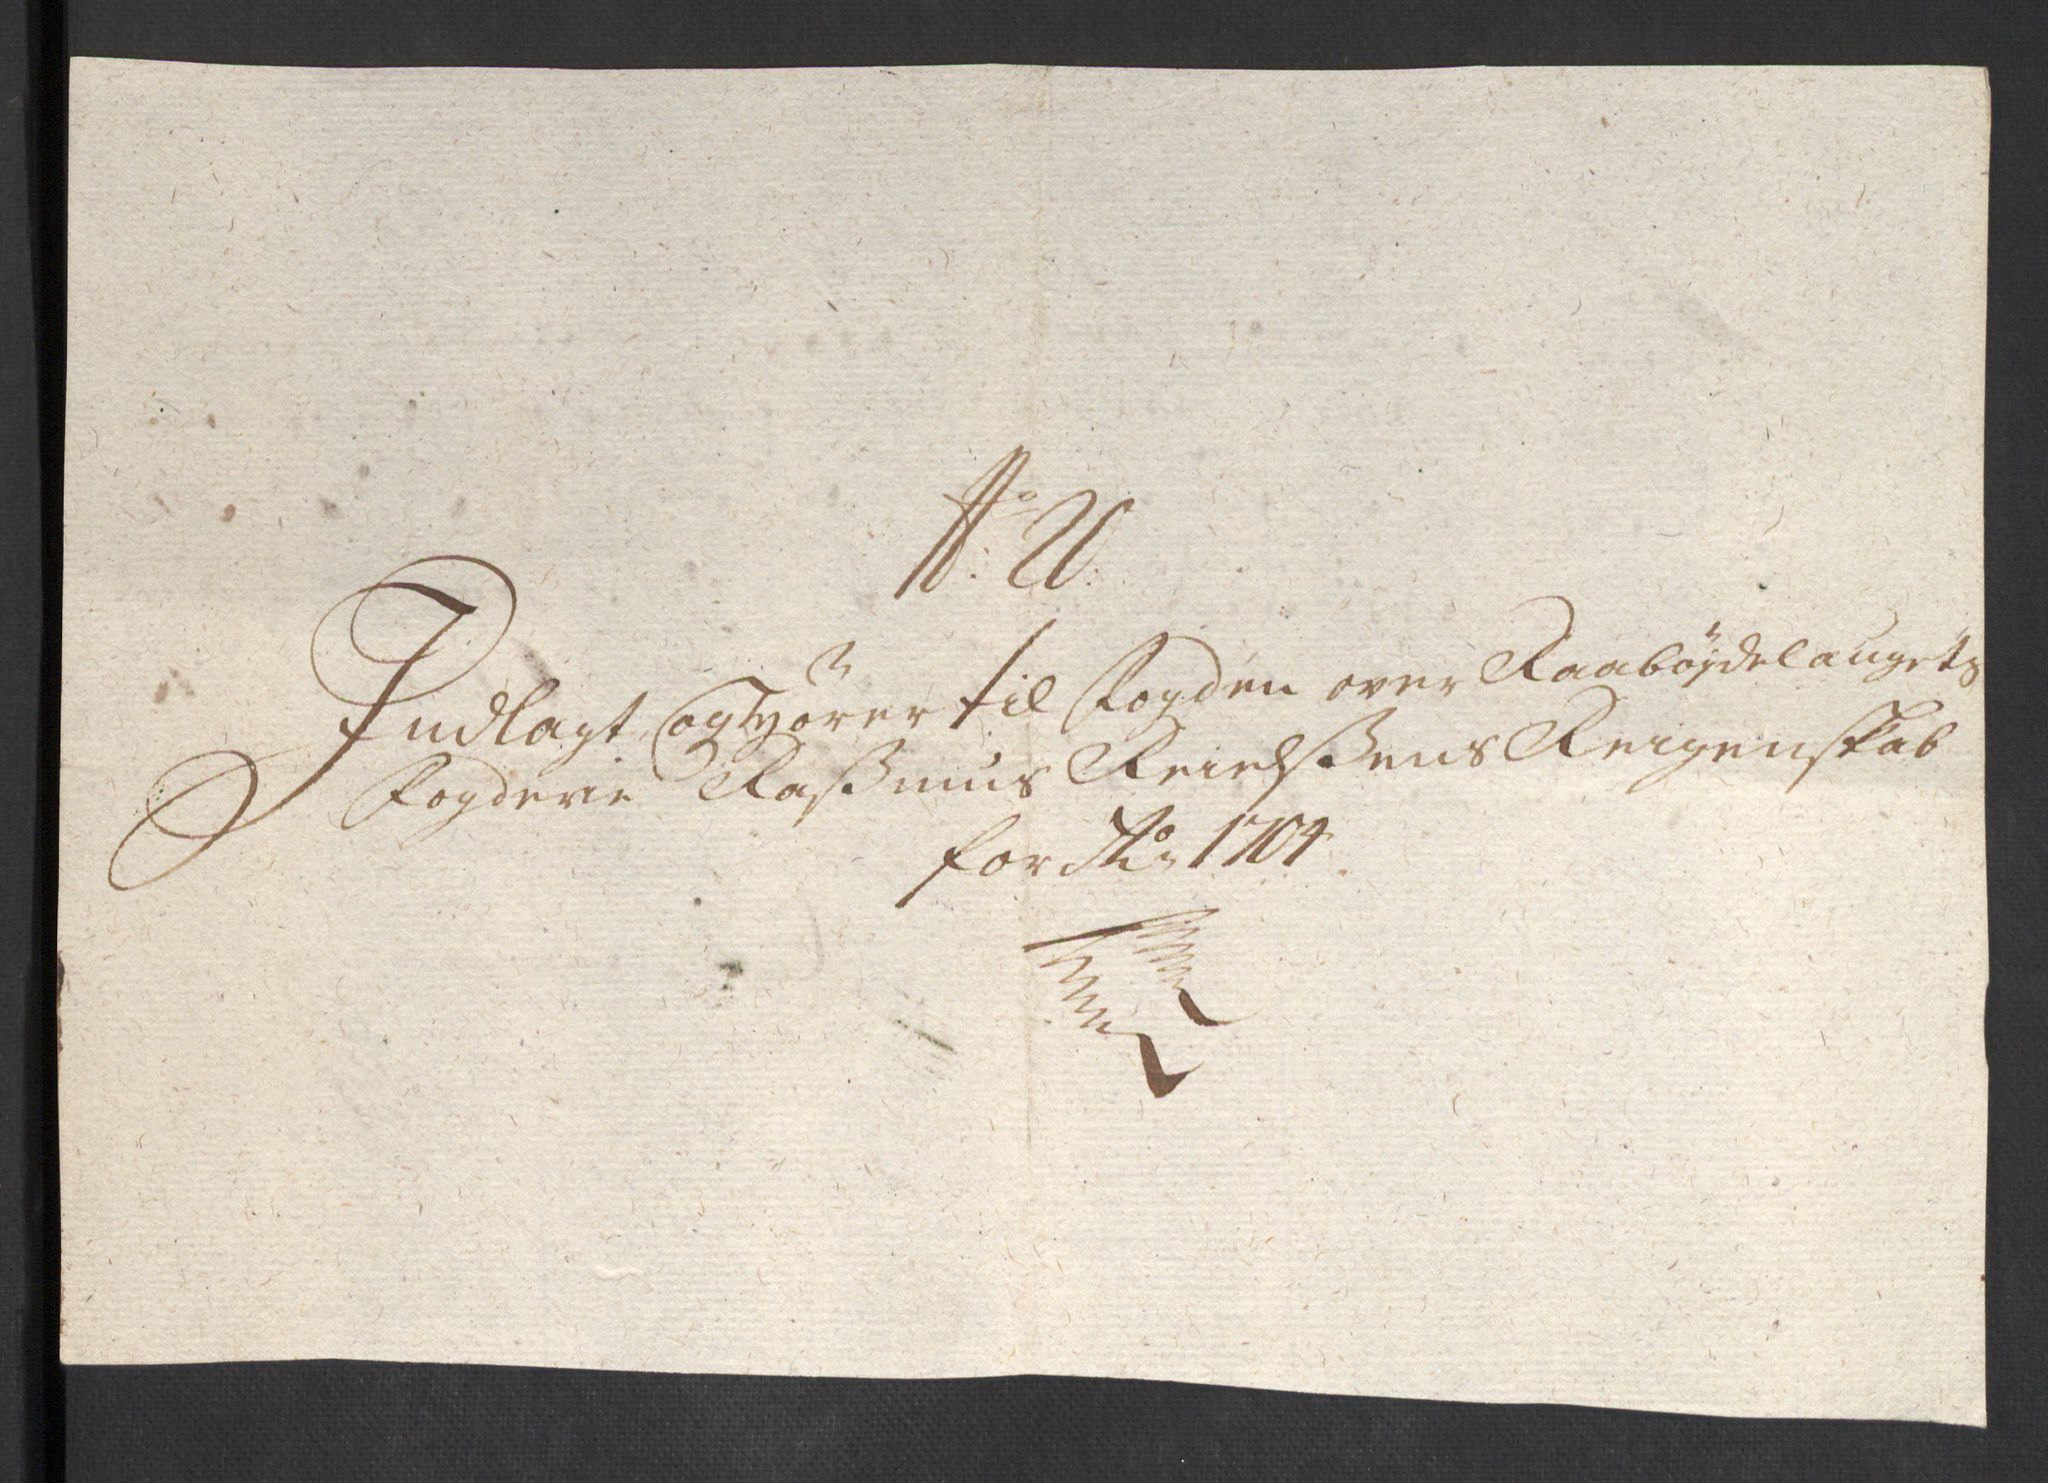 No: U:
Indlagt og hörer til Fogden over Raabøjdelaugets
Fogderie Rasmus Reielssens Reigenskab
for Ao 1704